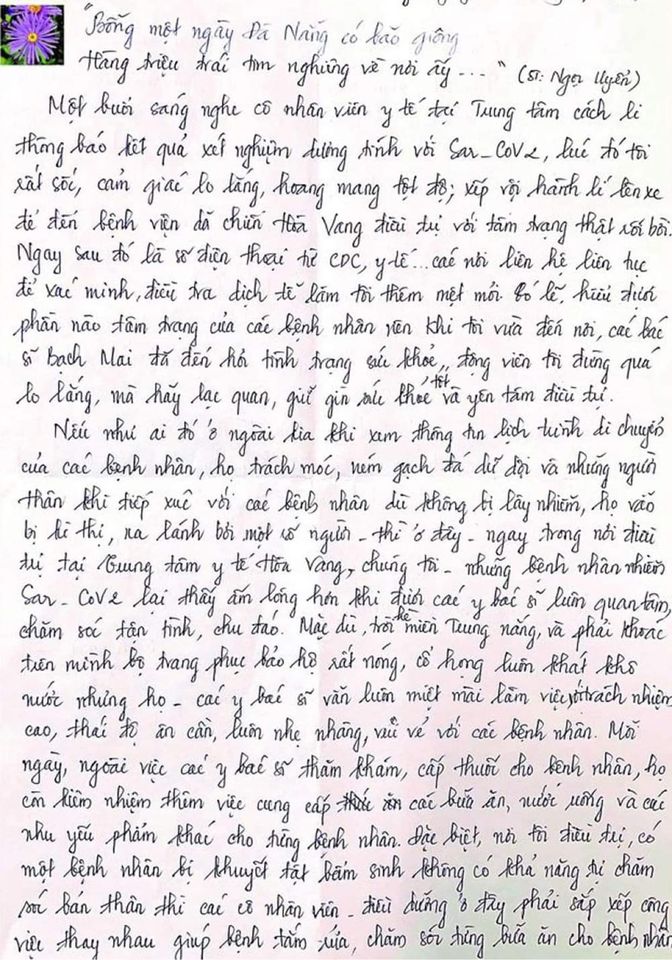 "Bỗng một ngày Đà Nẵng có bão giông
Hàng triệu trái tim nghiêng về nơi ấy..." (St: Ngọc Uyên)
Một buổi sáng nghe cô nhân viên y tế tại Trung tâm cách li
thông báo kết quả xét nghiệm dương tính với Sar-CoV2, lúc đó tôi
rất sốc, cảm giác lo lắng, hoang mang tột độ; xếp vội hành lí lên xe
để đến bệnh viện dã chiến Hòa Vang điều trị với tâm trạng thật rối bời.
Ngay sau đó là số điện thoại từ CDC, y tế... các nơi liên hệ liên tục
để xác minh, điều tra dịch tễ làm tôi thêm mệt mỏi. Có lẽ, hiểu được
phần nào tâm trạng của các bệnh nhân nên khi tôi vừa đến nơi, các bác
sĩ Bạch Mai đã đến hỏi tình trạng sức khỏe, động viên tôi đừng quá
lo lắng, mà hãy lạc quan, giữ gìn sức khỏe tốt và yên tâm điều trị.
Nếu như ai đó ở ngoài kia khi xem thông tin lịch trình di chuyển
của các bệnh nhân, họ trách móc, ném gạch đá dữ dội và những người
thân khi tiếp xúc với các bệnh nhân dù không bị lây nhiễm, họ vẫn
bị kì thị, xa lánh bởi một số người - thì ở đây - ngay trong nơi điều
trị tại Trung tâm y tế Hòa Vang, chúng tôi - những bệnh nhân nhiễm
Sar-CoV2 lại thấy ấm lòng hơn khi được các y bác sĩ luôn quan tâm,
chăm sóc tận tình, chu đáo. Mặc dù, trời hè miền Trung nắng, và phải khoác
trên mình bộ trang phục bảo hộ rất nóng, cổ họng luôn khát khô
nước nhưng họ - các y bác sĩ vẫn luôn miệt mài làm việc với trách nhiệm
cao, thái độ ân cần, luôn nhẹ nhàng, vui vẻ với các bệnh nhân. Mỗi
ngày, ngoài việc các y bác sĩ thăm khám, cấp thuốc cho bệnh nhân, họ
còn kiêm nhiệm thêm việc cung cấp thức ăn các bữa ăn, nước uống và các
nhu yếu phẩm khác cho từng bệnh nhân. Đặc biệt, nơi tôi điều trị, có
một bệnh nhân bị khuyết tật bẩm sinh không có khả năng tự chăm
sóc bản thân thì các cô nhân viên - điều dưỡng ở đây phải sắp xếp công
việc thay nhau giúp bệnh tắm rửa, chăm sóc từng bữa ăn cho bệnh nhân